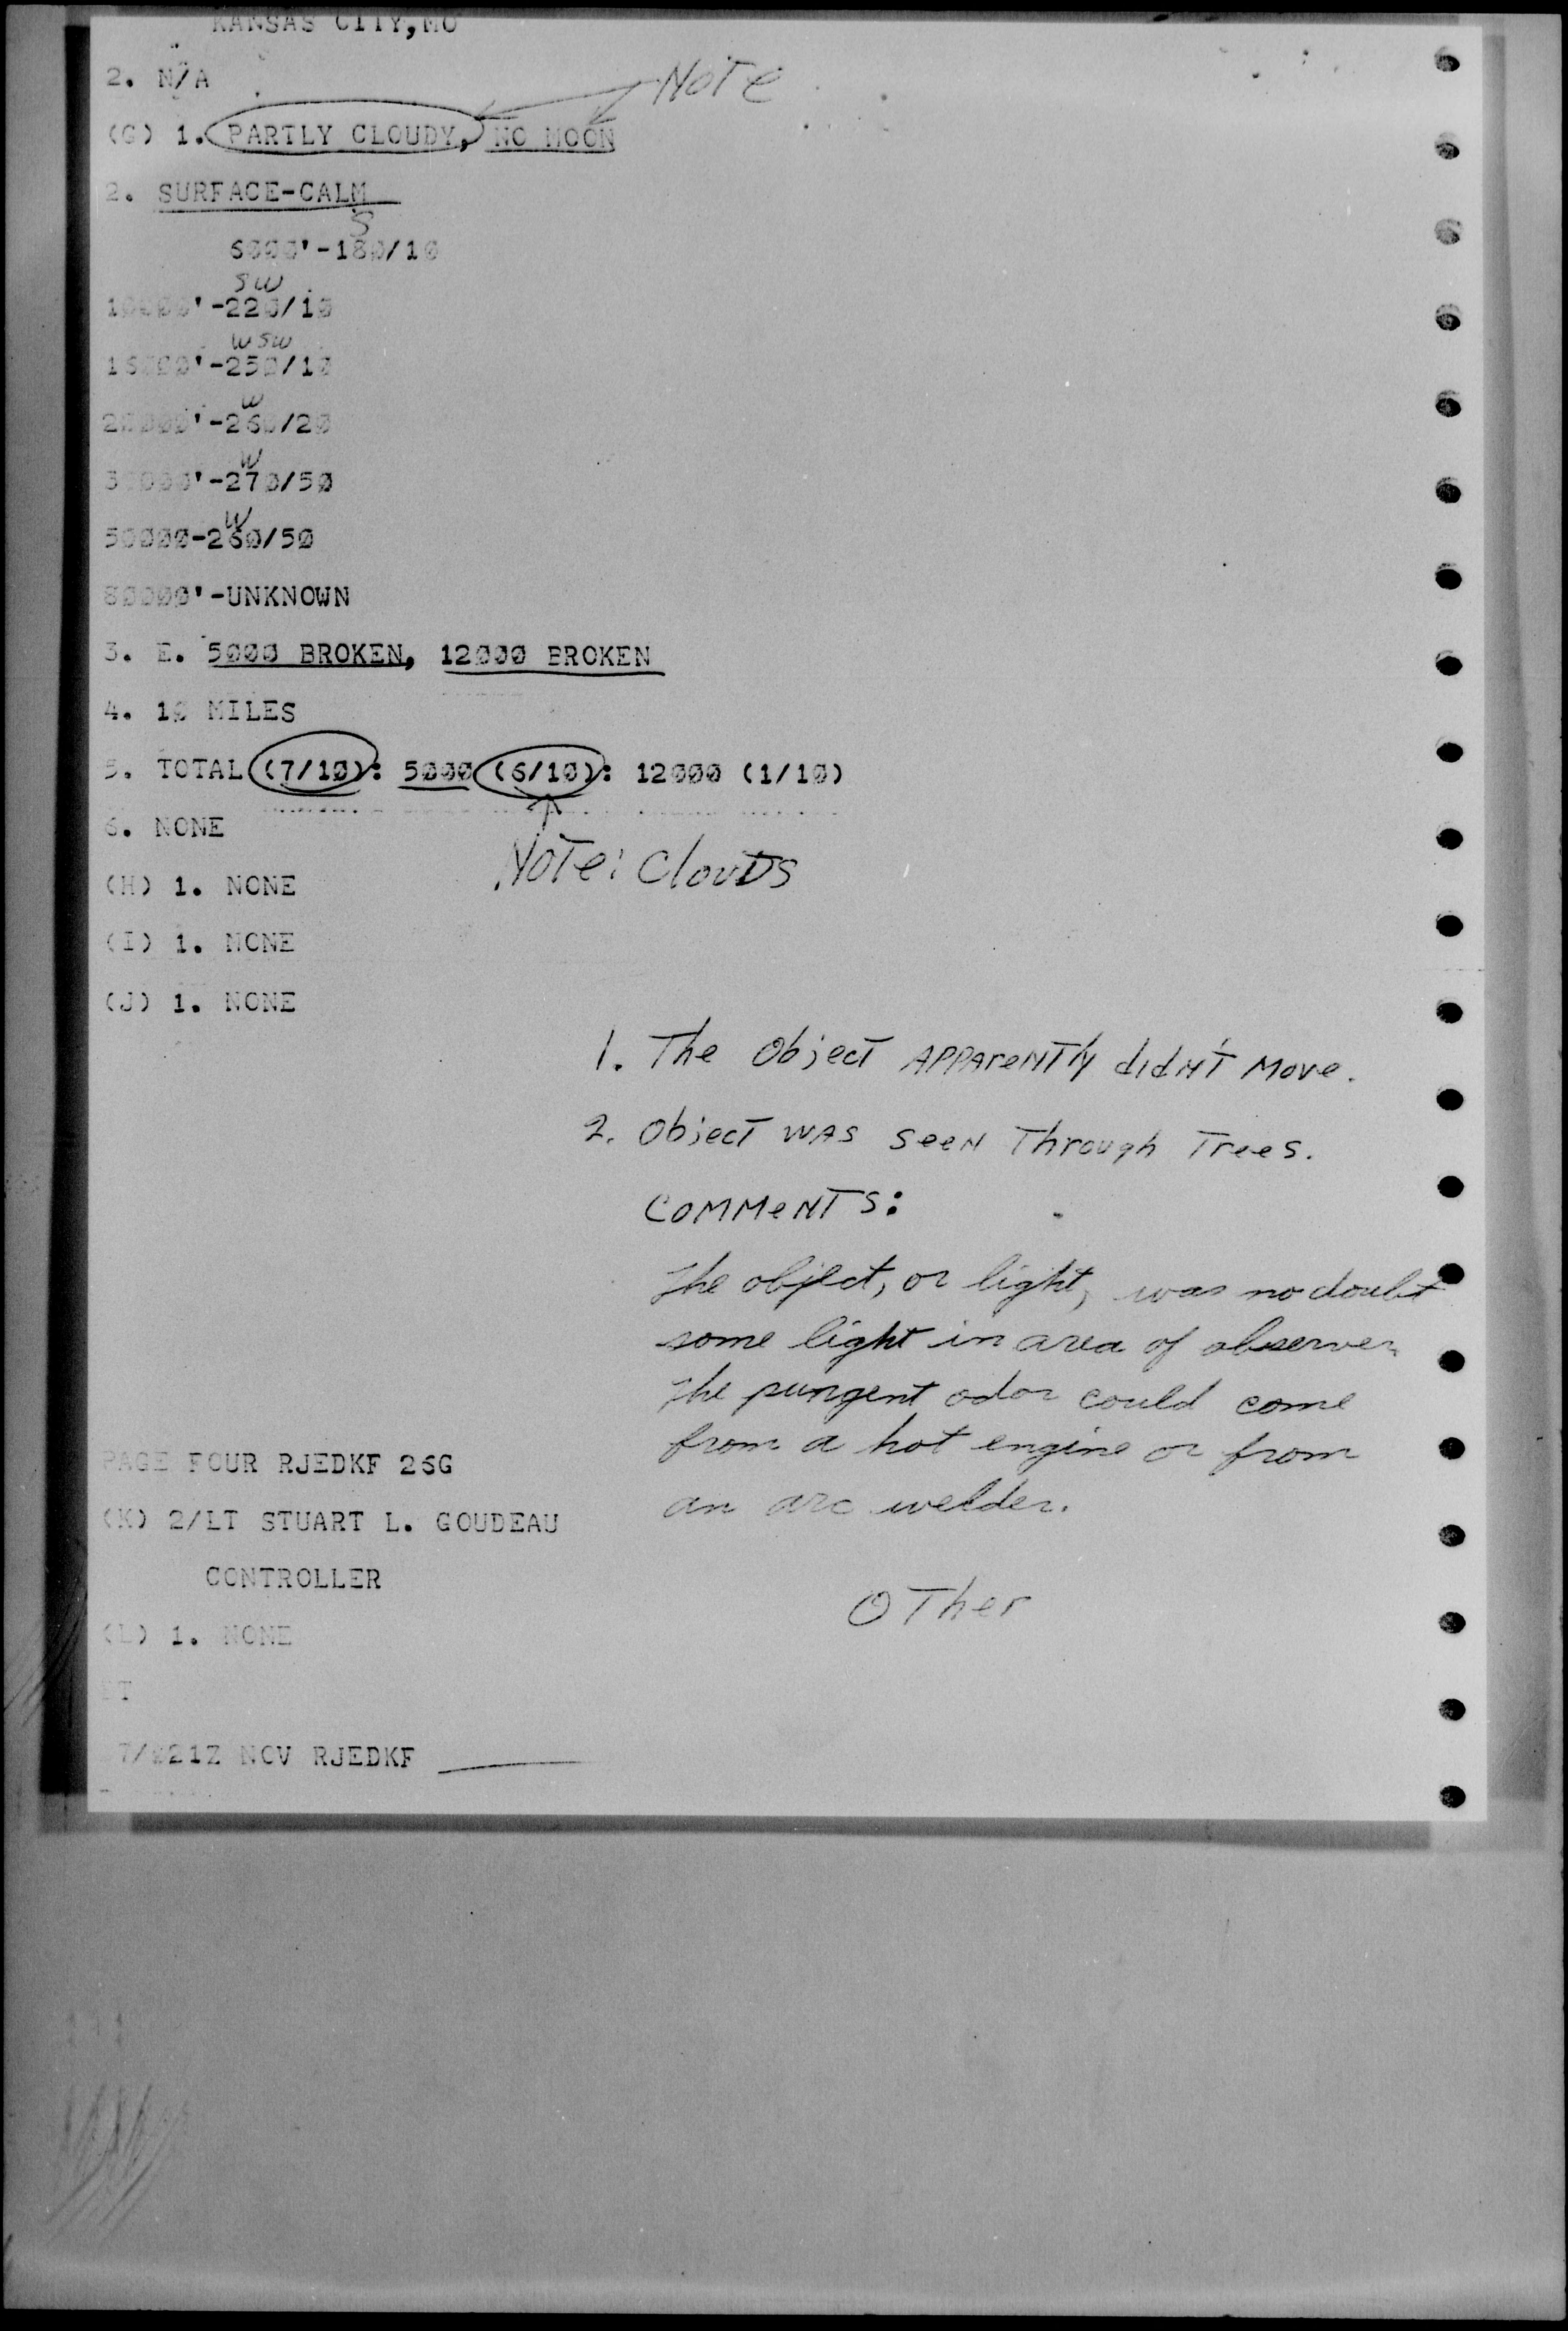 KANSAS CITY, MO
2. N/A
Note
(G) 1. PARTLY CLOUDY, NO MOON
2. SURFACE-CALM
S
6000'-180/10
SW
10000'-220/10
WSW
16000'-250/10
W
20000'-260/20
W
30000'-270/50
W
50000-260/50
80000'-UNKNOWN
3. E. 5000 BROKEN, 12000 BROKEN
4. 10 MILES
5. TOTAL (7/10): 5000 (6/10): 12000 (1/10)
6. NONE
Note: Clouds
(H) 1. NONE
(I) 1. NONE
(J) 1. NONE
1. The Object Apparently didn't Move.
2. Object was seen Through Trees.
Comments:
The object, or light, was no doubt
some light in area of observer.
The pungent odor could come
from a hot engine or from
an arc welder.
PAGE FOUR RJEDKF 26G
(K) 2/LT STUART L. GOUDEAU
CONTROLLER
Other
(L) 1. NONE
7/021Z NOV RJEDKF